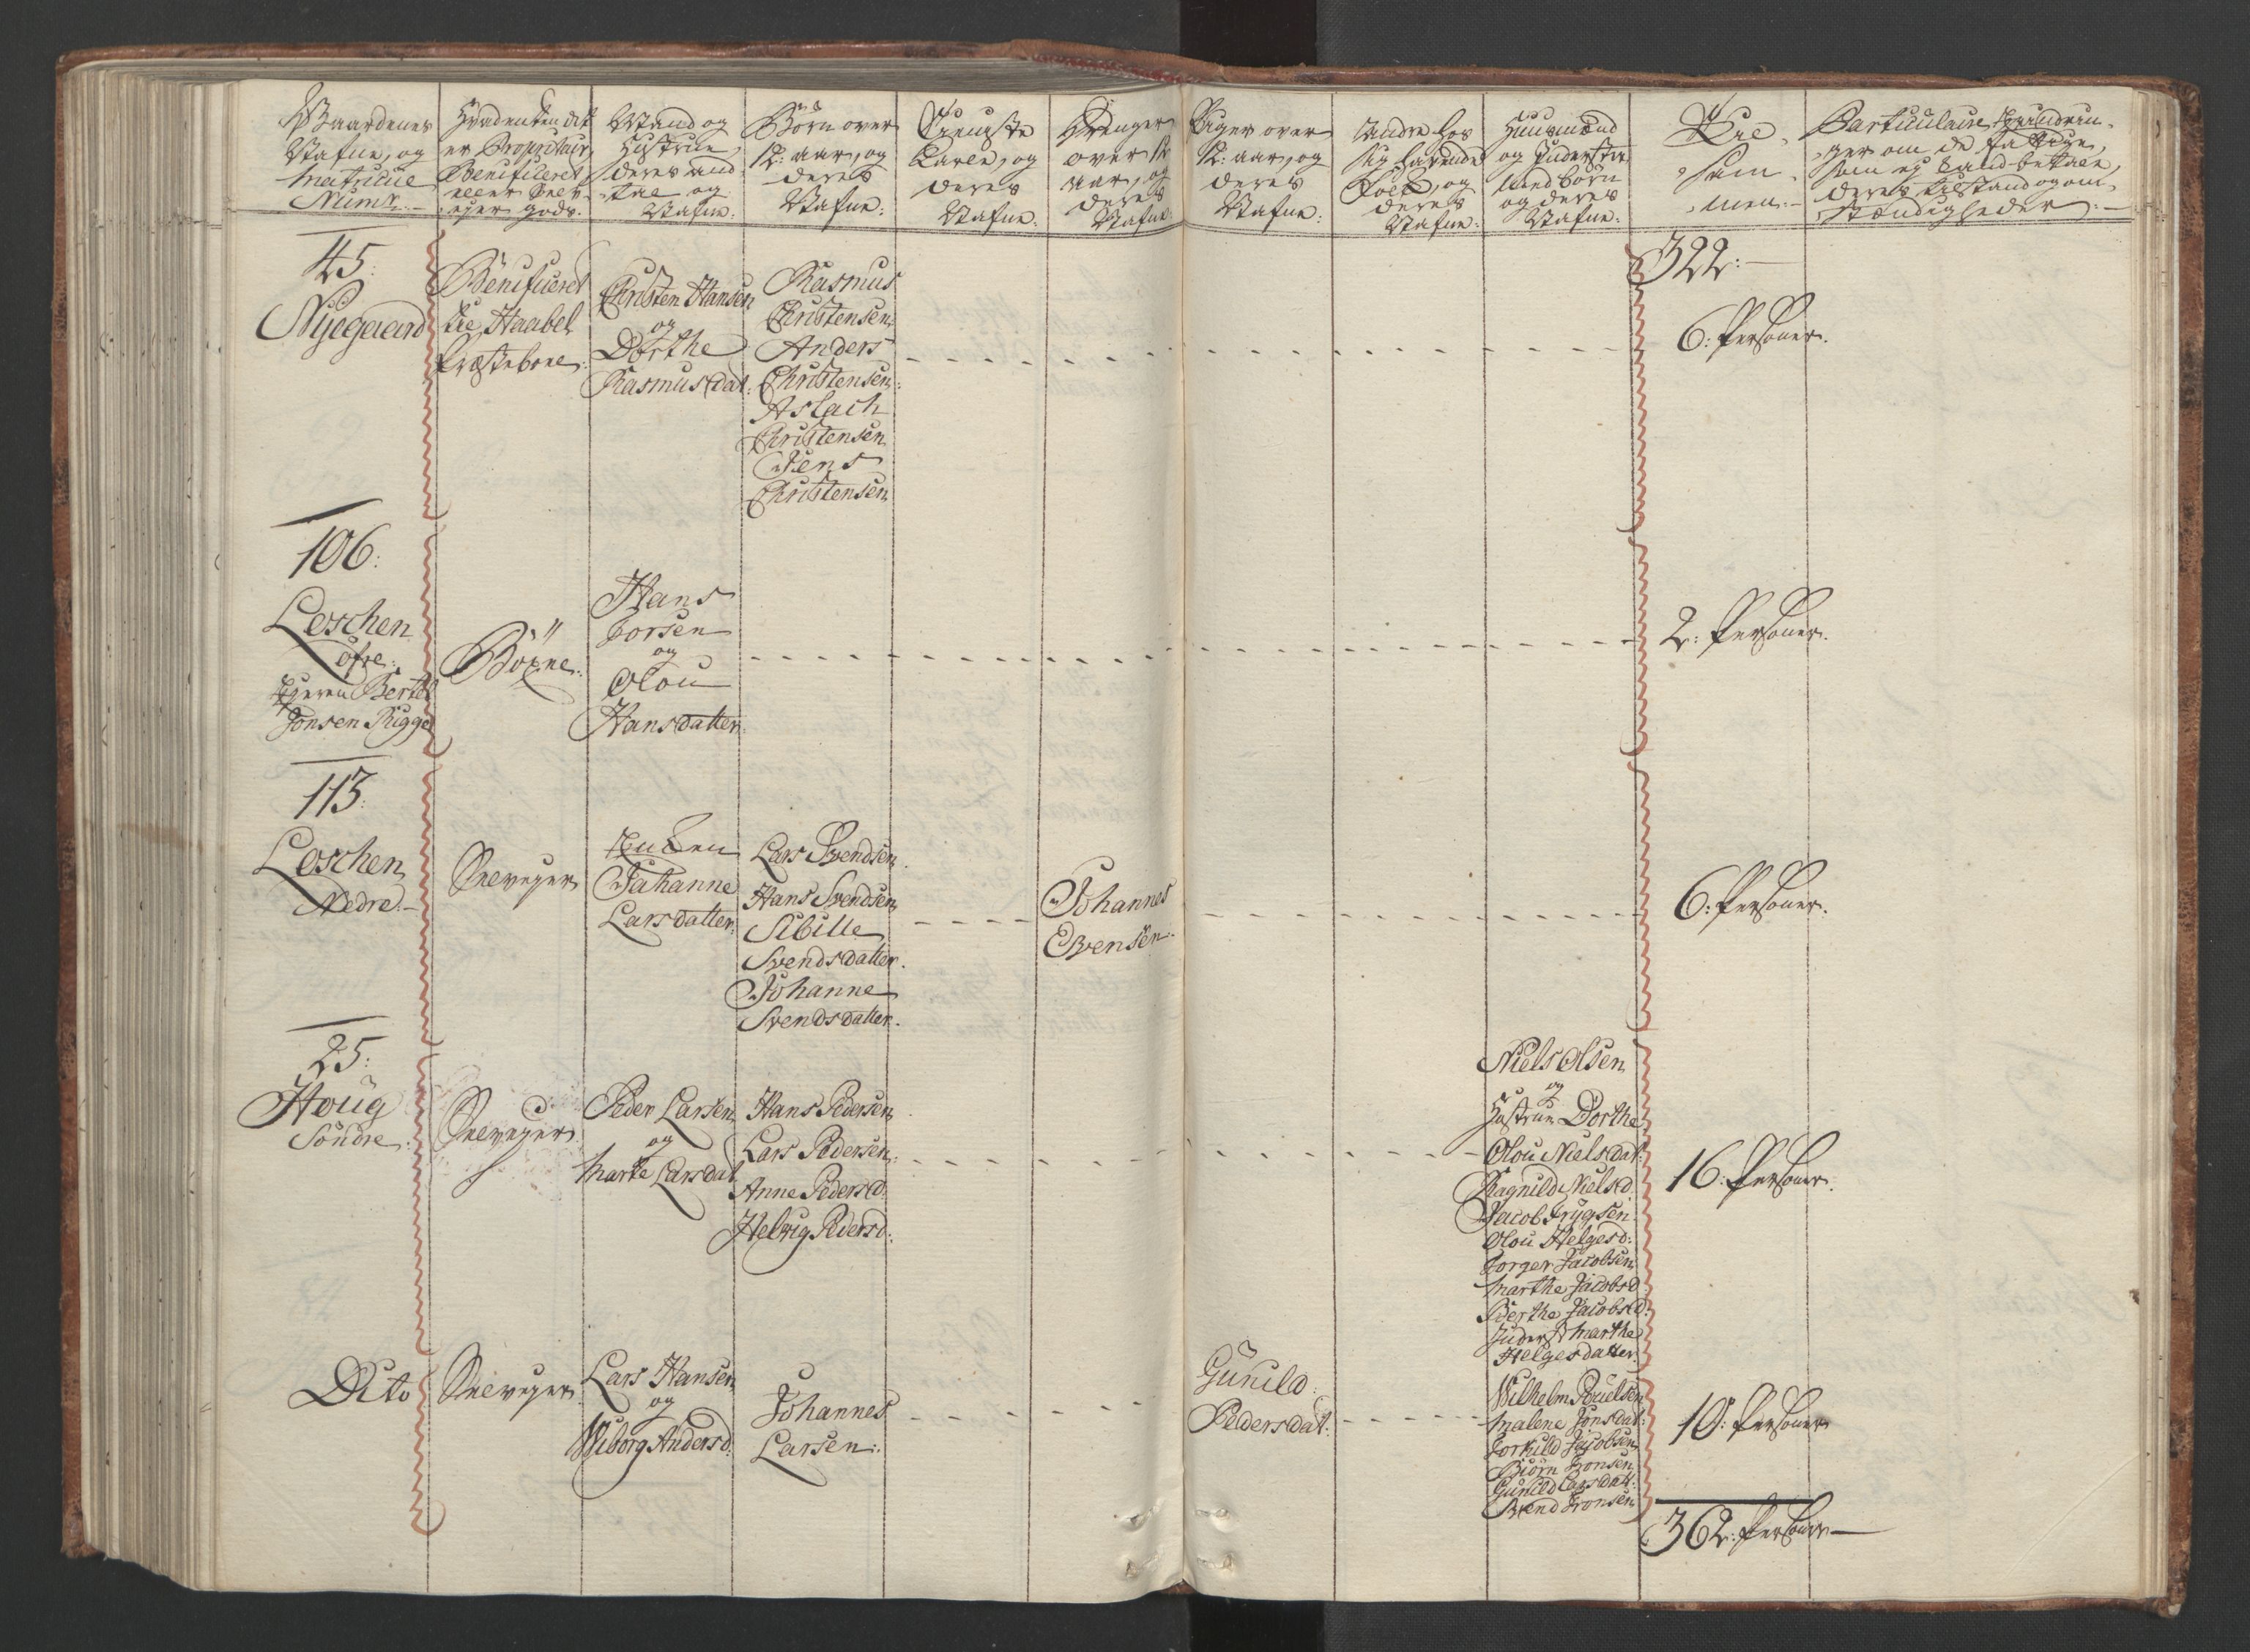 Gaardenes
Nafne, og
Matricul
Numr:
Hvad enten det
er Proprietair,
Beneficeret
eller Selv-
ejer gods.
Mand og
Hustrue,
deres
og
Nafne:
Börn over
12: aar, og
deres
Nafne:
Tieniste
Karle, og
deres
Nafne:
Drenger
over 12
aar, og
deres
Nafne
Piger over
12: aar, og
deres
Nafne:
Andre hos
sig havende
Folck, og
deres
Nafne:
Huusmænd
og Inderster
med börn
og deres
Nafne:
Til-
sam-
men:
Particulaire Erindrin-
ger om de fattige,
som ej kand betale,
deres tilstand og om-
stændigheder:
45:
Nyegaard
Beneficeret
til Haabel
Præstebole:
Christen Hansen
og
Dorthe
Rasmusdat:
Rasmus
Christensen
Anders
Christensen:
Aslach
Christensen
Jens
Christensen
322:
6: Personer.
106:
Loschen
öfre:
Ejeren Bertel
Jonsen Rigge
Böxne:
Hans
Torsen
og
Olou
Hansdatter:
2: Personer.
113:
Loschen
Nedre.
Selvejer
Enken
Johanne
Larsdatter:
Lars Svendsen
Hans Svendsen
Sibille
Svendsdatter.
Johanne
Svendsdatter.
Johannes
Evensen:
6: Personer.
25:
Houg
Söndre:
Selvejer.
Peder Larsen
og
Marte Larsdat
Hans Pedersen
Lars Pedersen:
Anne Pedersd:
Helvig Pedersd:
Niels Olsen
og
Hustrue Dorthe
Olou Nielsdat:
Ragnild Nielsd:
Jacob Trygsen:
Olou Helgesd:
Torger Jacobsen
Marthe Jacobsd
Berthe Jacobsd:
Inderst Marthe
Helgesdatter.
16: Personer.
Dito
Selvejer.
Lars Hansen
og
Wiborg Andersd:
Johannes
Larsen:
Gunild
Pedersdat:
Wilhelm Poulsen
Malene Jonsdat:
Torkild Jacobsen
Biörn Tronsen
Gunild Larsdatt:
Svend Tronsen
10: Personer
362: Personer